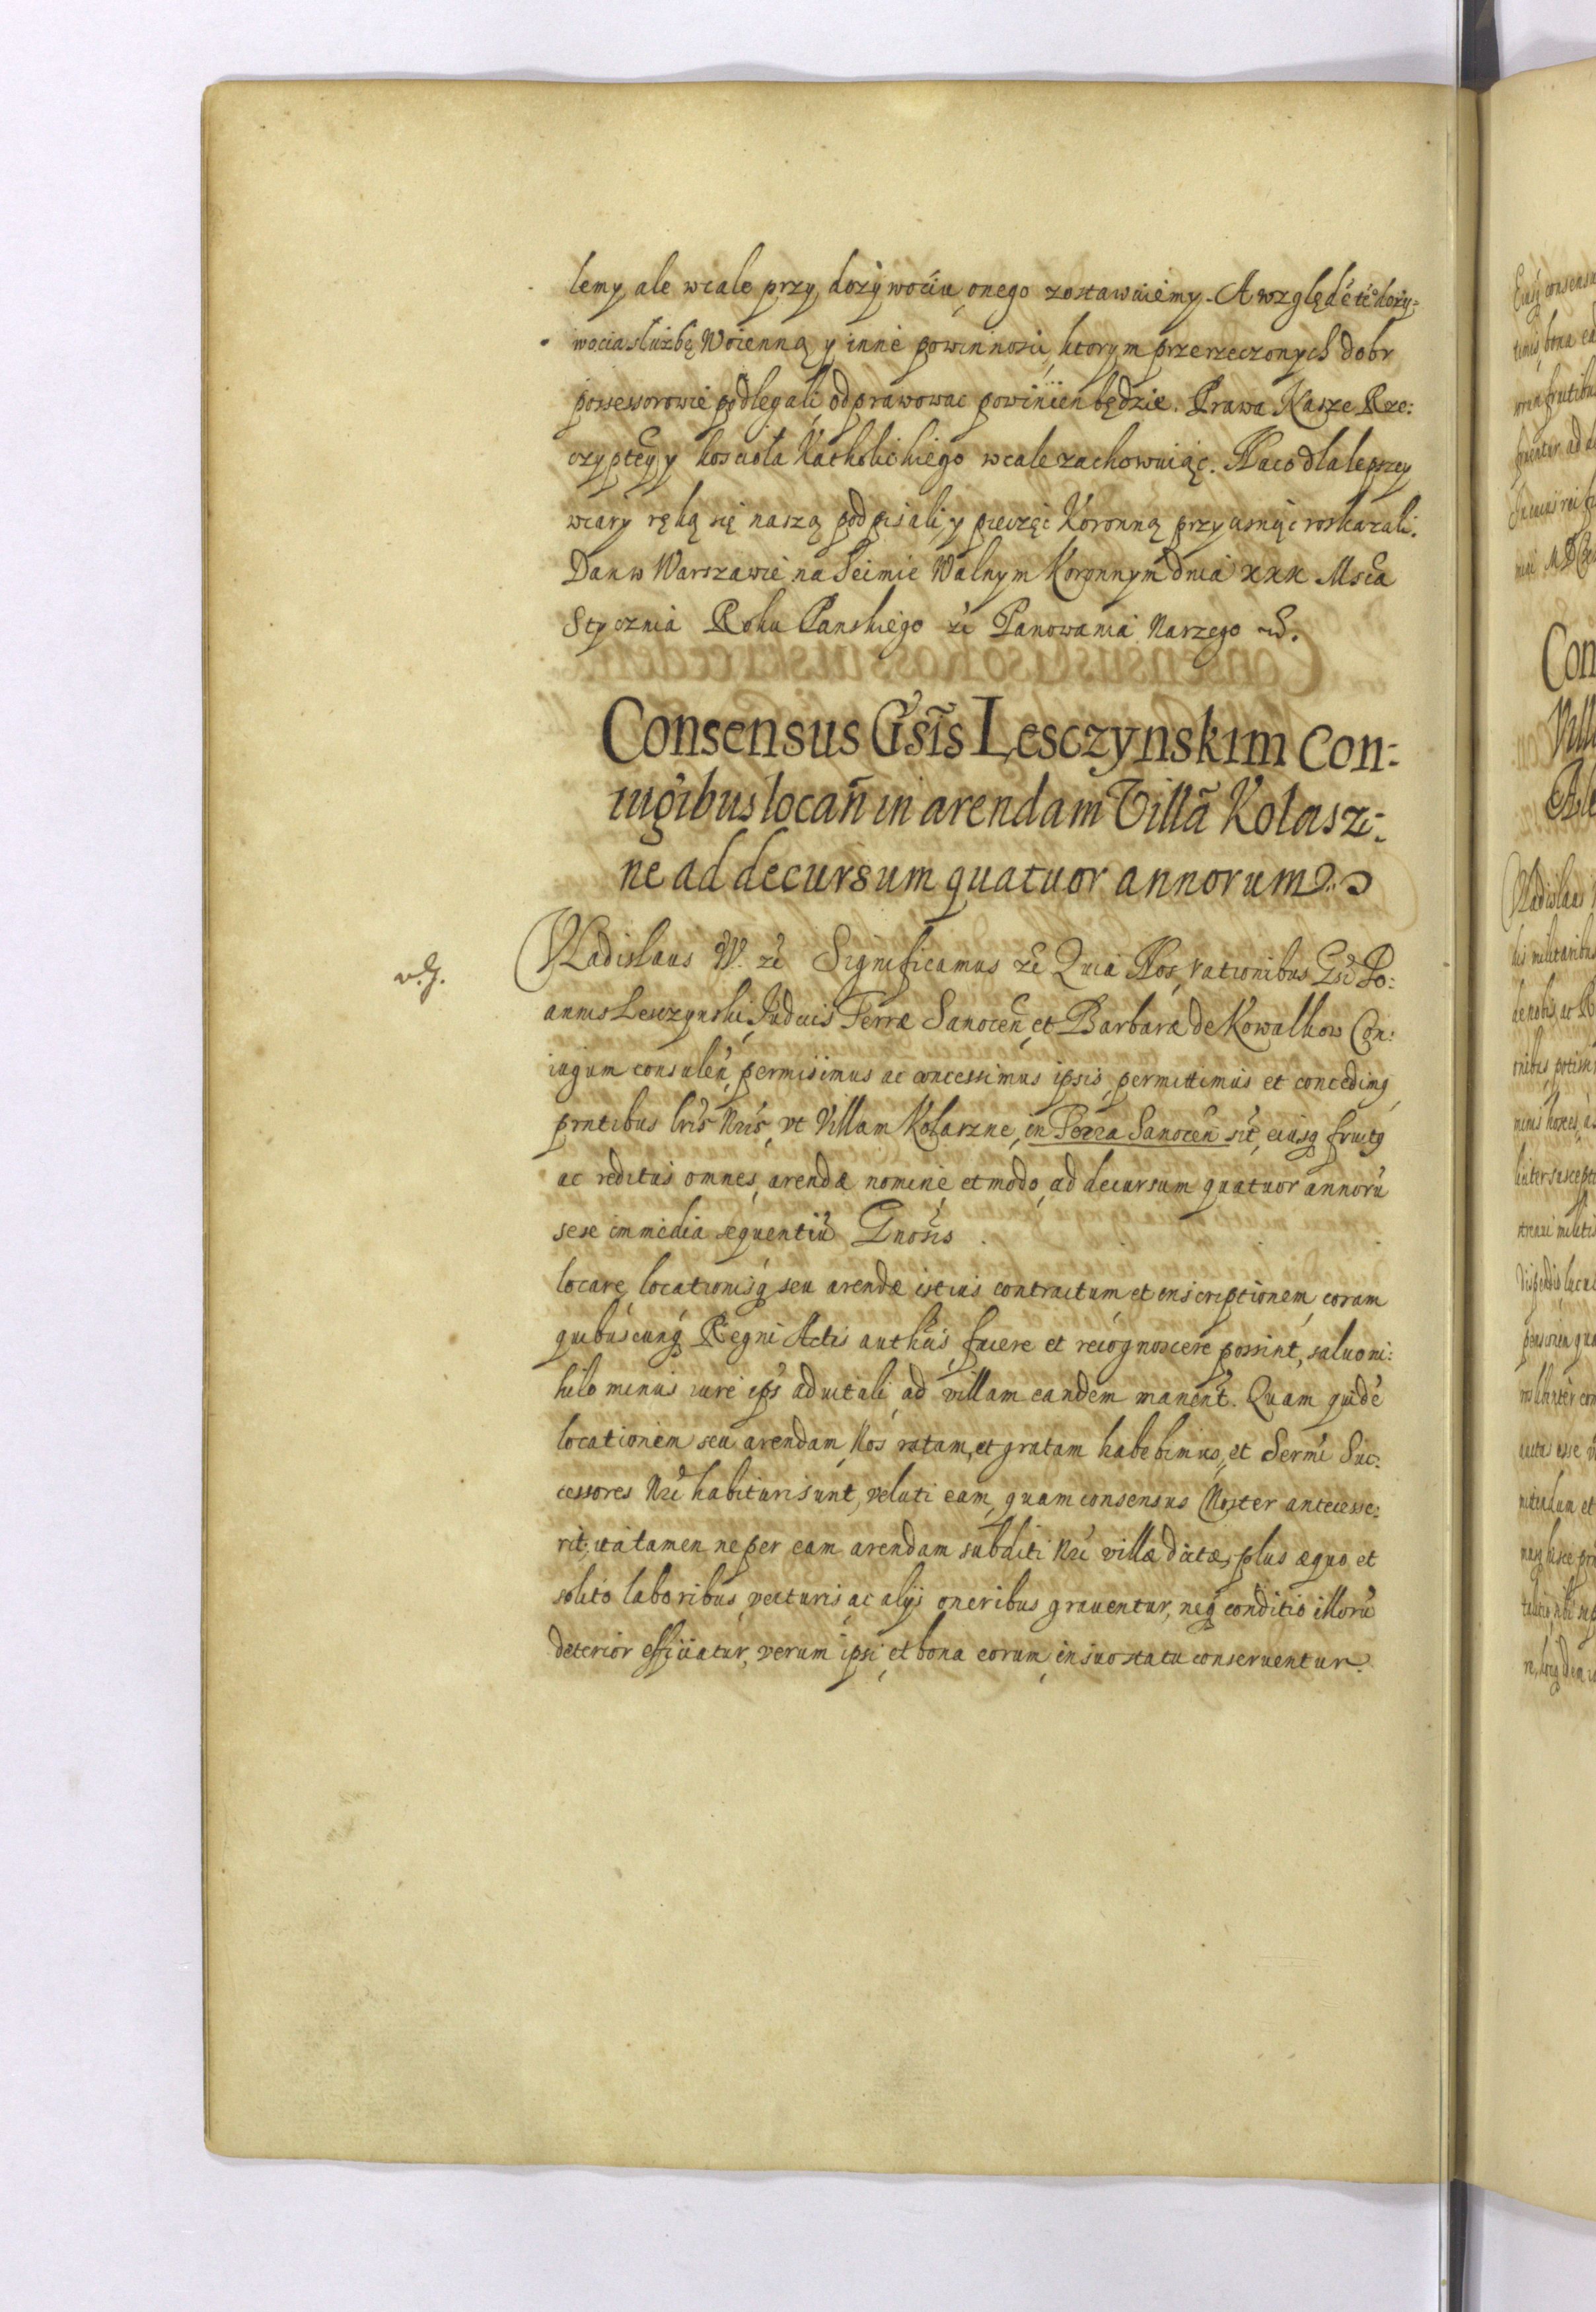 lemy, ale wcale przy dożywociu onego zostawuiemy. A względē tē doży:
wocia służbę Woienną y inne powinnosci, ktorym przerzeczonych dobr
possessorowie podlegali, odprawowac powinien będzie. Prawa Nasze Rze:
czyptey y koscioła Katholickiego wcale zachowuiąc. Na co dla lepszey
wiary ręką się naszą podpisali, y pieczęć Koronną przycisnąc roskazali.
Dan w Warszawie na Seimie Walnym Koronnym dnia XXX Msca
Stycznia Roku Panskiego zc Panowania Naszego
Consensus Gsis Lesczynskim Con:
iugibus locañ in arendam Villā Kolasz:
ne ad decursum quatuor annorum
v. g.
Vladislaus IV. zc Significamus zc Quia Nos, rationibus Gsi Jo:
annis Lesczynski, Judicis Terræ Sanoceñ, et Barbaræ de Kowalkow Con:
iugum consuleñ, permisimus ac concessimus ipsis, permittimus et concedimq
pñtibus lris Nris, vt Villam Kolaszne, in Terra Sanoceñ sit, eiusq fructq
ac reditus omnes, arendæ nomine et modo, ad decursum quatuor annorū
sese immedia sequentiū Gnosis
locare, locationisq seu arendæ istius contractum et inscriptionem, coram
quibuscunq Regni Actis authēis, facere et recognoscere possint, saluo ni:
hilominus iure ips aduitali, ad villam eandem maneñt. Quam quidē
locationem seu arendam, Nos ratam, et gratam habebimus, et Sermi Suc:
cessores Nri habituri sunt, veluti eam, quam consensus Noster antecesse:
rit, ita tamen ne per eam arendam subditi Nri villæ dictæ, plus æquo et
solito laboribus, vecturis, ac alijs oneribus grauentur, neq conditio illorū
deterior efficiatur, verum ipsi, et bona eorum, in suo statu conseruentur.